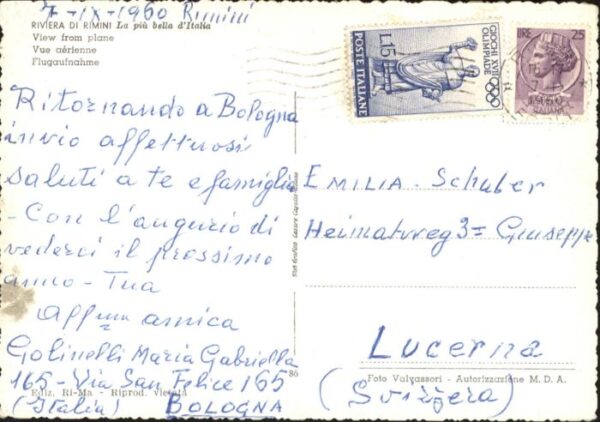 7-IX-1960 Rimini
RIVIERA DI RIMINI La più bella d'Italia
View from plane
Vue aérienne
Flugaufnahme
Ritornando a Bologna
invio affettuosi
saluti a te e famiglia
- Con l'augurio di
vederci il prossimo
anno - Tua
Aff.ma amica
Golinelli Maria Gabriella
165 - Via San Felice 165
(Italia) BOLOGNA
Ediz. Ri-Ma - Riprod. Vietata
86
POSTE ITALIANE
L.15
GIOCHI XVII OLIMPIADE
LIRE 25
1960
EMILIA - Schuber
Heimatweg 3 = Giuseppe
Lucerna
Foto Valyassori - Autorizzazione M. D. A.
(Svizzera)